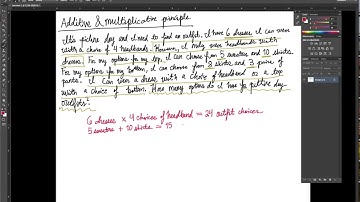 Additive & multiplicative principle
Its picture day and I need to find an outfit. I have 6 dresses I can wear
with a choice of 4 headbands. However, I only wear headbands with
dresses. For my options for my top, I can choose from 5 sweaters and 10 shirts.
For my options for my bottom, I can choose from 8 skirts and 3 pairs of
pants. I can wear a dress with a choice of headband or a top
with a choice of bottom. How many options do I have for picture day
outfits?
6 dresses x 4 choices of headband = 24 outfit choices
5 sweaters + 10 shirts = 15